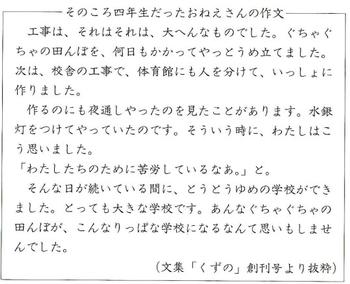 そのころ四年生だったおねえさんの作文
工事は、それはそれは、大へんなものでした。ぐちゃぐ
ちゃの田んぼを、何日もかかってやっとうめ立てました。
次は、校舎の工事で、体育館にも人を分けて、いっしょに
作りました。
作るのにも夜通しやったのを見たことがあります。水銀
灯をつけてやっていたのです。そういう時に、わたしはこ
う思いました。
「わたしたちのために苦労しているなあ。」と。
そんな日が続いている間に、とうとうゆめの学校ができ
ました。とっても大きな学校です。あんなぐちゃぐちゃの
田んぼが、こんなりっぱな学校になるなんて思いもしませ
んでした。
(文集「くずの」創刊号より抜粋)